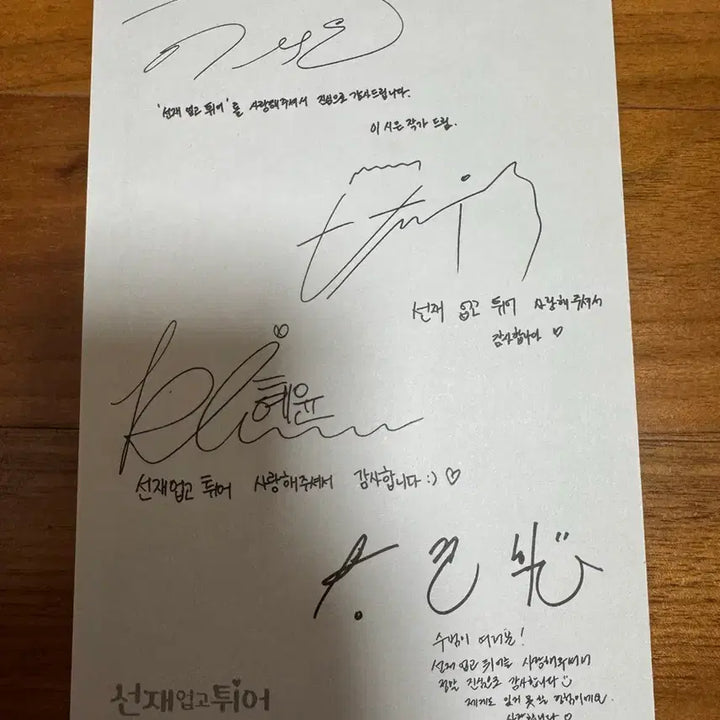 '선재 업고 튀어'를 사랑해주셔서 진심으로 감사드립니다.
이 시은 작가 드림.
선재 업고 튀어 사랑해주셔서
감사합니다 ♡
혜윤
선재 업고 튀어 사랑해주셔서 감사합니다 :) ♡
수범이 여러분!
선재 업고 튀어를
정말 진심으로 감사합니다
저에게도 잊지 못할
사랑합니다 ♡
선재업고튀어